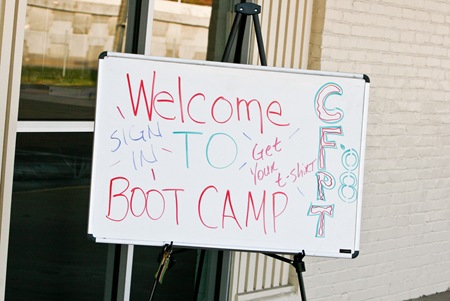 Welcome
SIGN IN
TO
Get Your t-shirt
BOOT CAMP
CFRT
'08